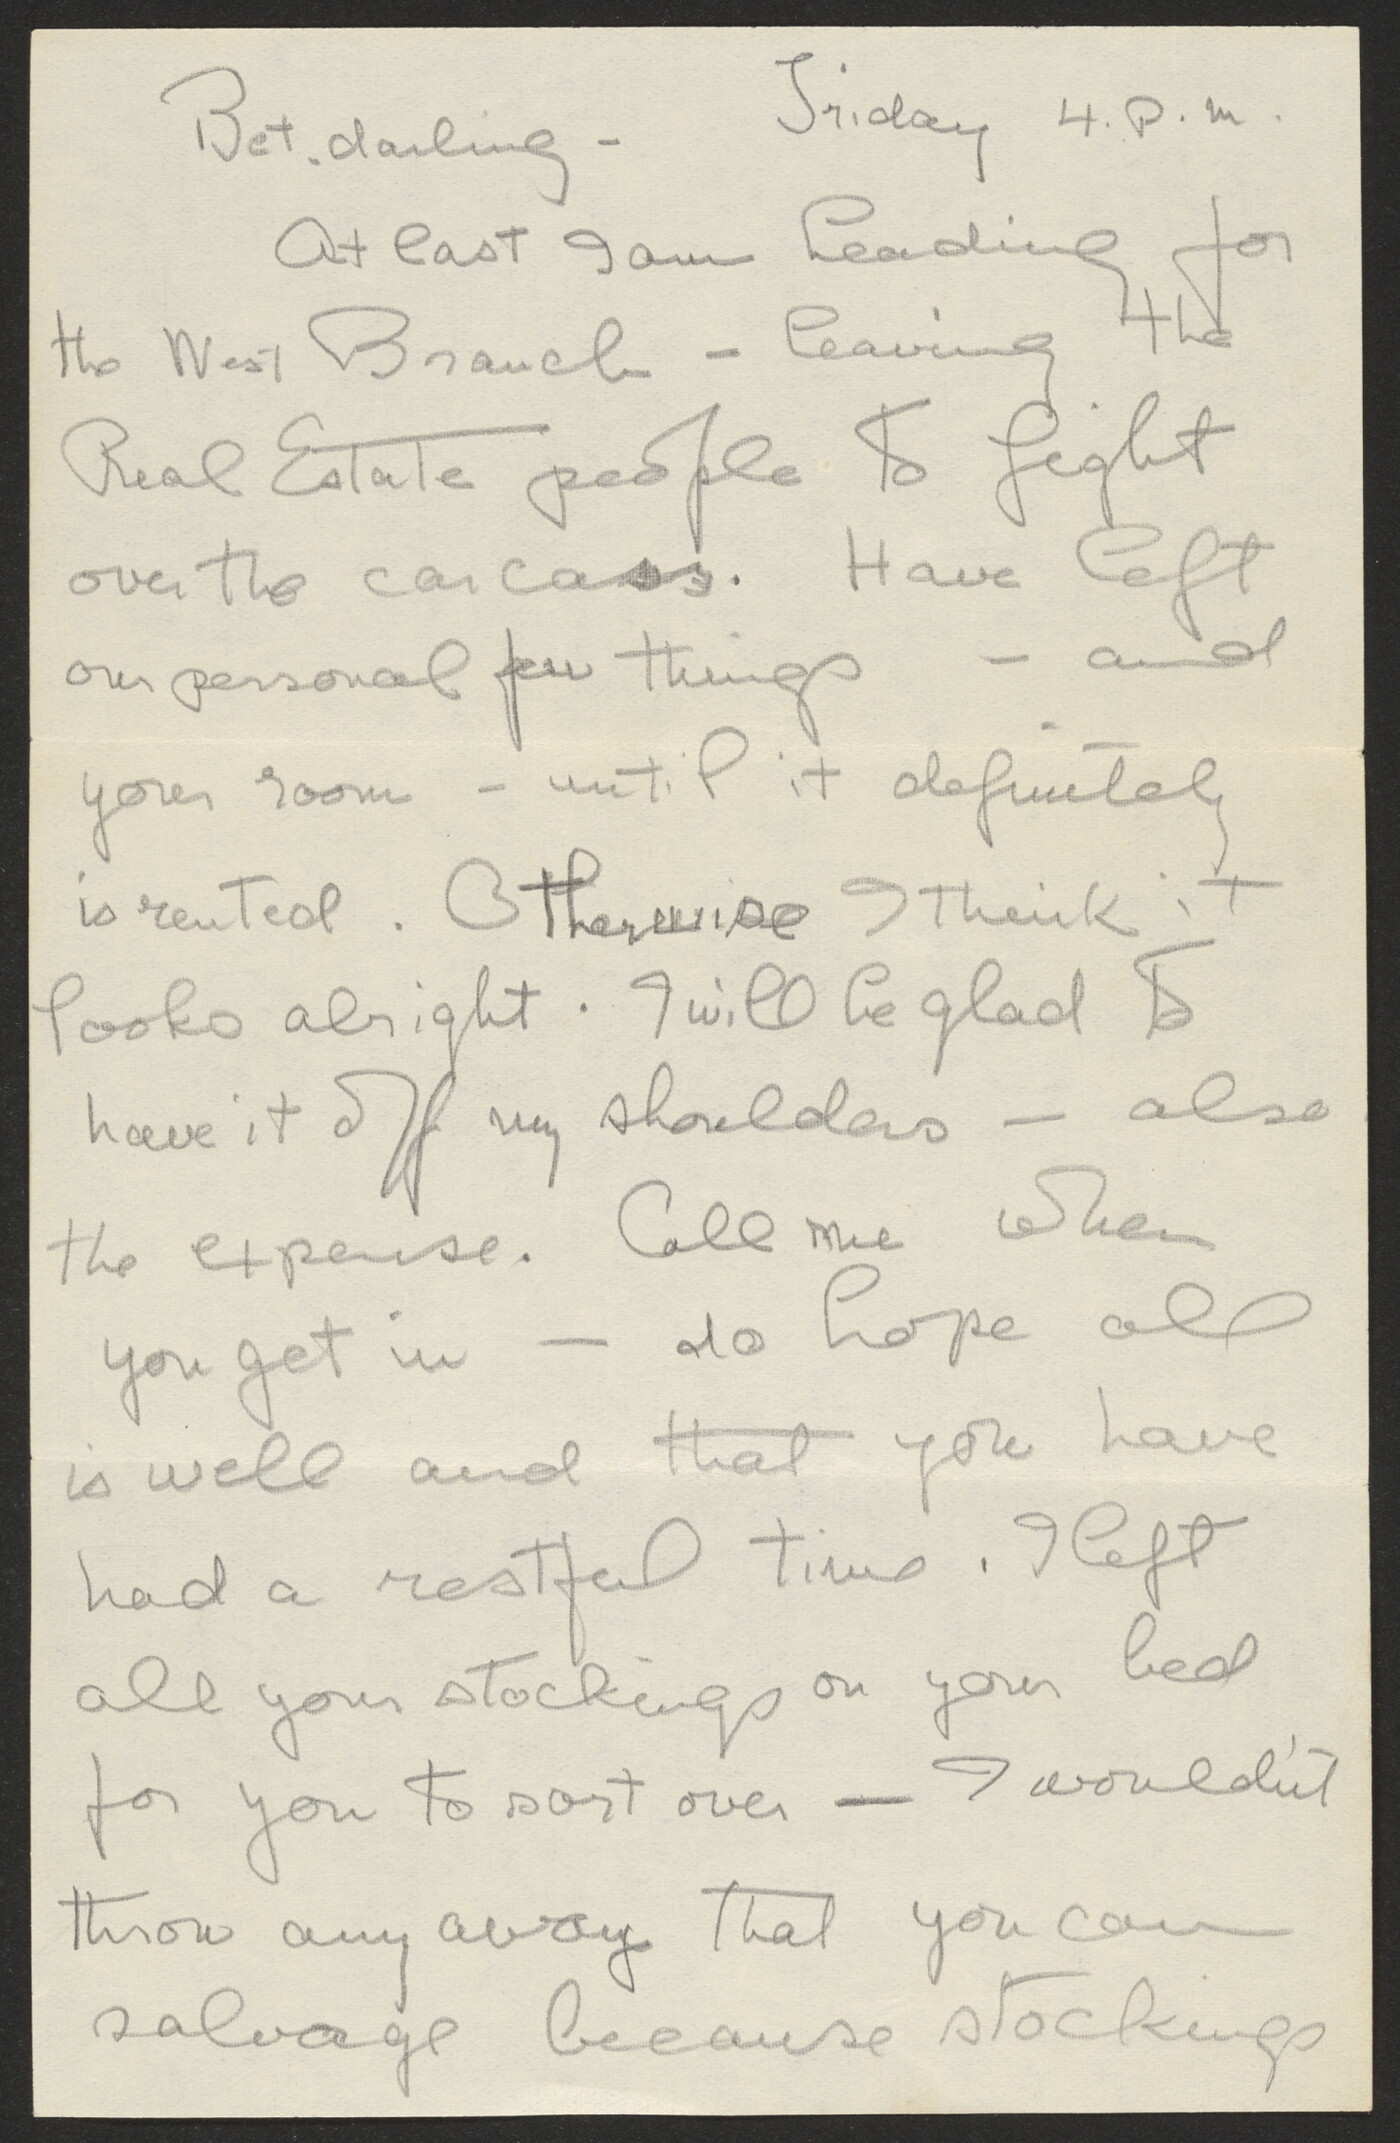 Friday 4. P. m.
Bet. darling -
At last I am heading for
the West Branch - leaving the
Real Estate people to fight
over the carcass. Have left
our personal few things - and
your room - until it definitely
is rented. Otherwise I think it
looks alright. I will be glad to
have it off my shoulders - also
the expense. Call me when
you get in - do hope all
is well and that you have
had a restful time. I left
all your stockings on your bed
for you to sort over - I wouldn't
throw any away that you can
salvage because stockings